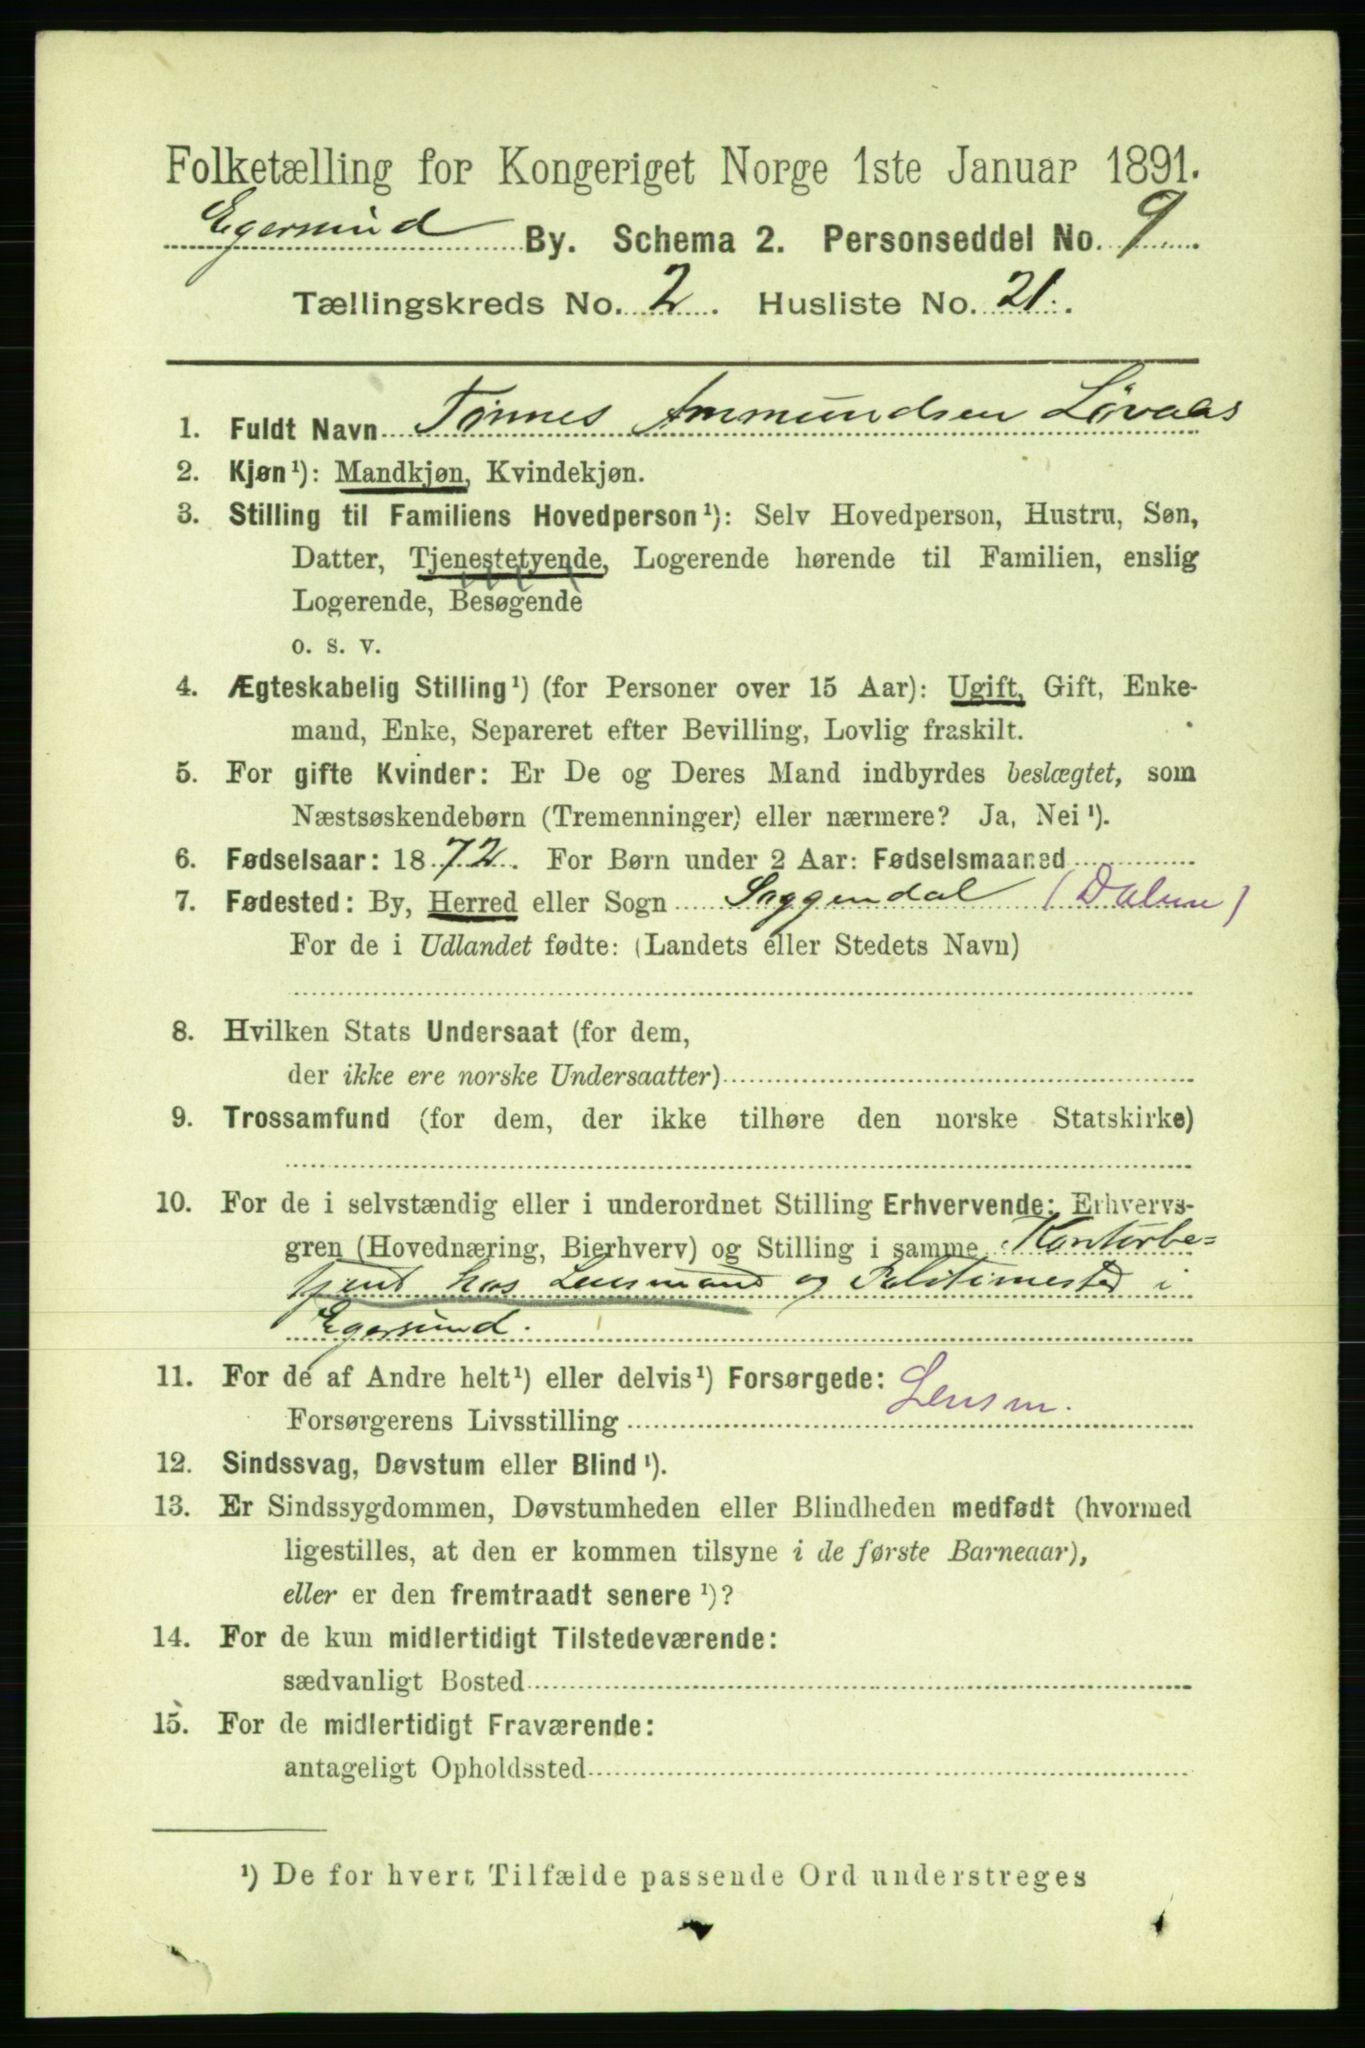 Folketælling for Kongeriget Norge 1ste Januar 1891.
Egersund By. Schema 2. Personseddel No. 9
Tællingskreds No. 2. Husliste No. 21.
1. Fuldt Navn Tönnes Ammundsen Lövaas
2. Kjøn¹): Mandkjøn, Kvindekjøn.
3. Stilling til Familiens Hovedperson¹): Selv Hovedperson, Hustru, Søn,
Datter, Tjenestetyende, Logerende hørende til Familien, enslig
Logerende, Besøgende
o. s. v.
4. Ægteskabelig Stilling¹) (for Personer over 15 Aar): Ugift, Gift, Enke-
mand, Enke, Separeret efter Bevilling, Lovlig fraskilt.
5. For gifte Kvinder: Er De og Deres Mand indbyrdes beslægtet, som
Næstsøskendebørn (Tremenninger) eller nærmere? Ja, Nei¹).
6. Fødselsaar: 1872. For Børn under 2 Aar: Fødselsmaaned
7. Fødested: By, Herred eller Sogn Soggendal (Dalene)
For de i Udlandet fødte: (Landets eller Stedets Navn)
8. Hvilken Stats Undersaat (for dem,
der ikke ere norske Undersaatter)
9. Trossamfund (for dem, der ikke tilhøre den norske Statskirke)
10. For de i selvstændig eller i underordnet Stilling Erhvervende: Erhvervs-
gren (Hovednæring, Bierhverv) og Stilling i samme Kontorbe=
tjent hos Lensmand og Politimester i
Egersund.
11. For de af Andre helt¹) eller delvis¹) Forsørgede:
Forsørgerens Livsstilling Lensm.
12. Sindssvag, Døvstum eller Blind¹).
13. Er Sindssygdommen, Døvstumheden eller Blindheden medfødt (hvormed
ligestilles, at den er kommen tilsyne i de første Barneaar),
eller er den fremtraadt senere¹)?
14. For de kun midlertidigt Tilstedeværende:
sædvanligt Bosted
15. For de midlertidigt Fraværende:
antageligt Opholdssted
¹) De for hvert Tilfælde passende Ord understreges